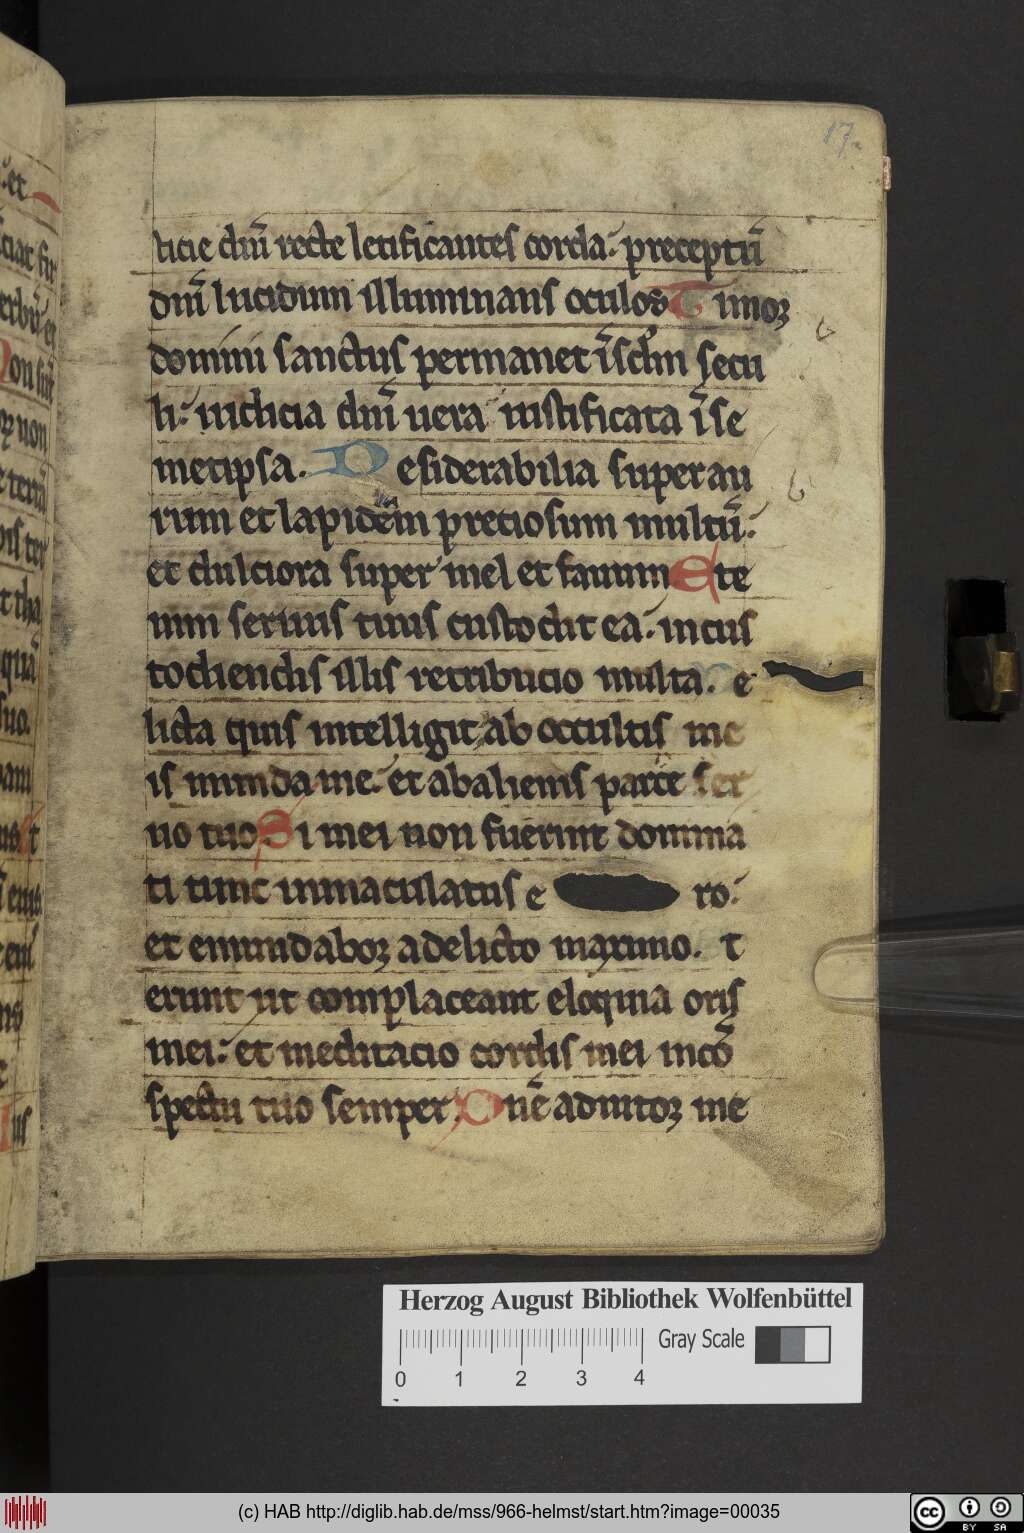 17.
ticie dn̄i recte letificantes corda: preceptū
dn̄i lucidum illuminans oculos Timoꝝ
domini sanctus permanet ī sclm̄ secu
li: iudicia dn̄i uera iustificata ī se
metipsa. Desiderabilia super au
rum et lapidem preciosum multū:
et dulciora super mel et fauum Ete
nim seruus tuus custodit ea: in cus
todiendis illis retribucio multa. De
licta quis intelligit ab occultis me
is munda me: et ab alienis parce ser
uo tuo Si mei non fuerint domina
ti tunc inmaculatus e ro:
et emundaboꝝ a delicto maximo. t
erunt ut complaceant eloquia oris
mei: et meditacio cordis mei in cō
spectu tuo semper. Dn̄e adiutoꝝ me
Herzog August Bibliothek Wolfenbüttel
Gray Scale
0 1 2 3 4
(c) HAB http://diglib.hab.de/mss/966-helmst/start.htm?image=00035
cc BY SA